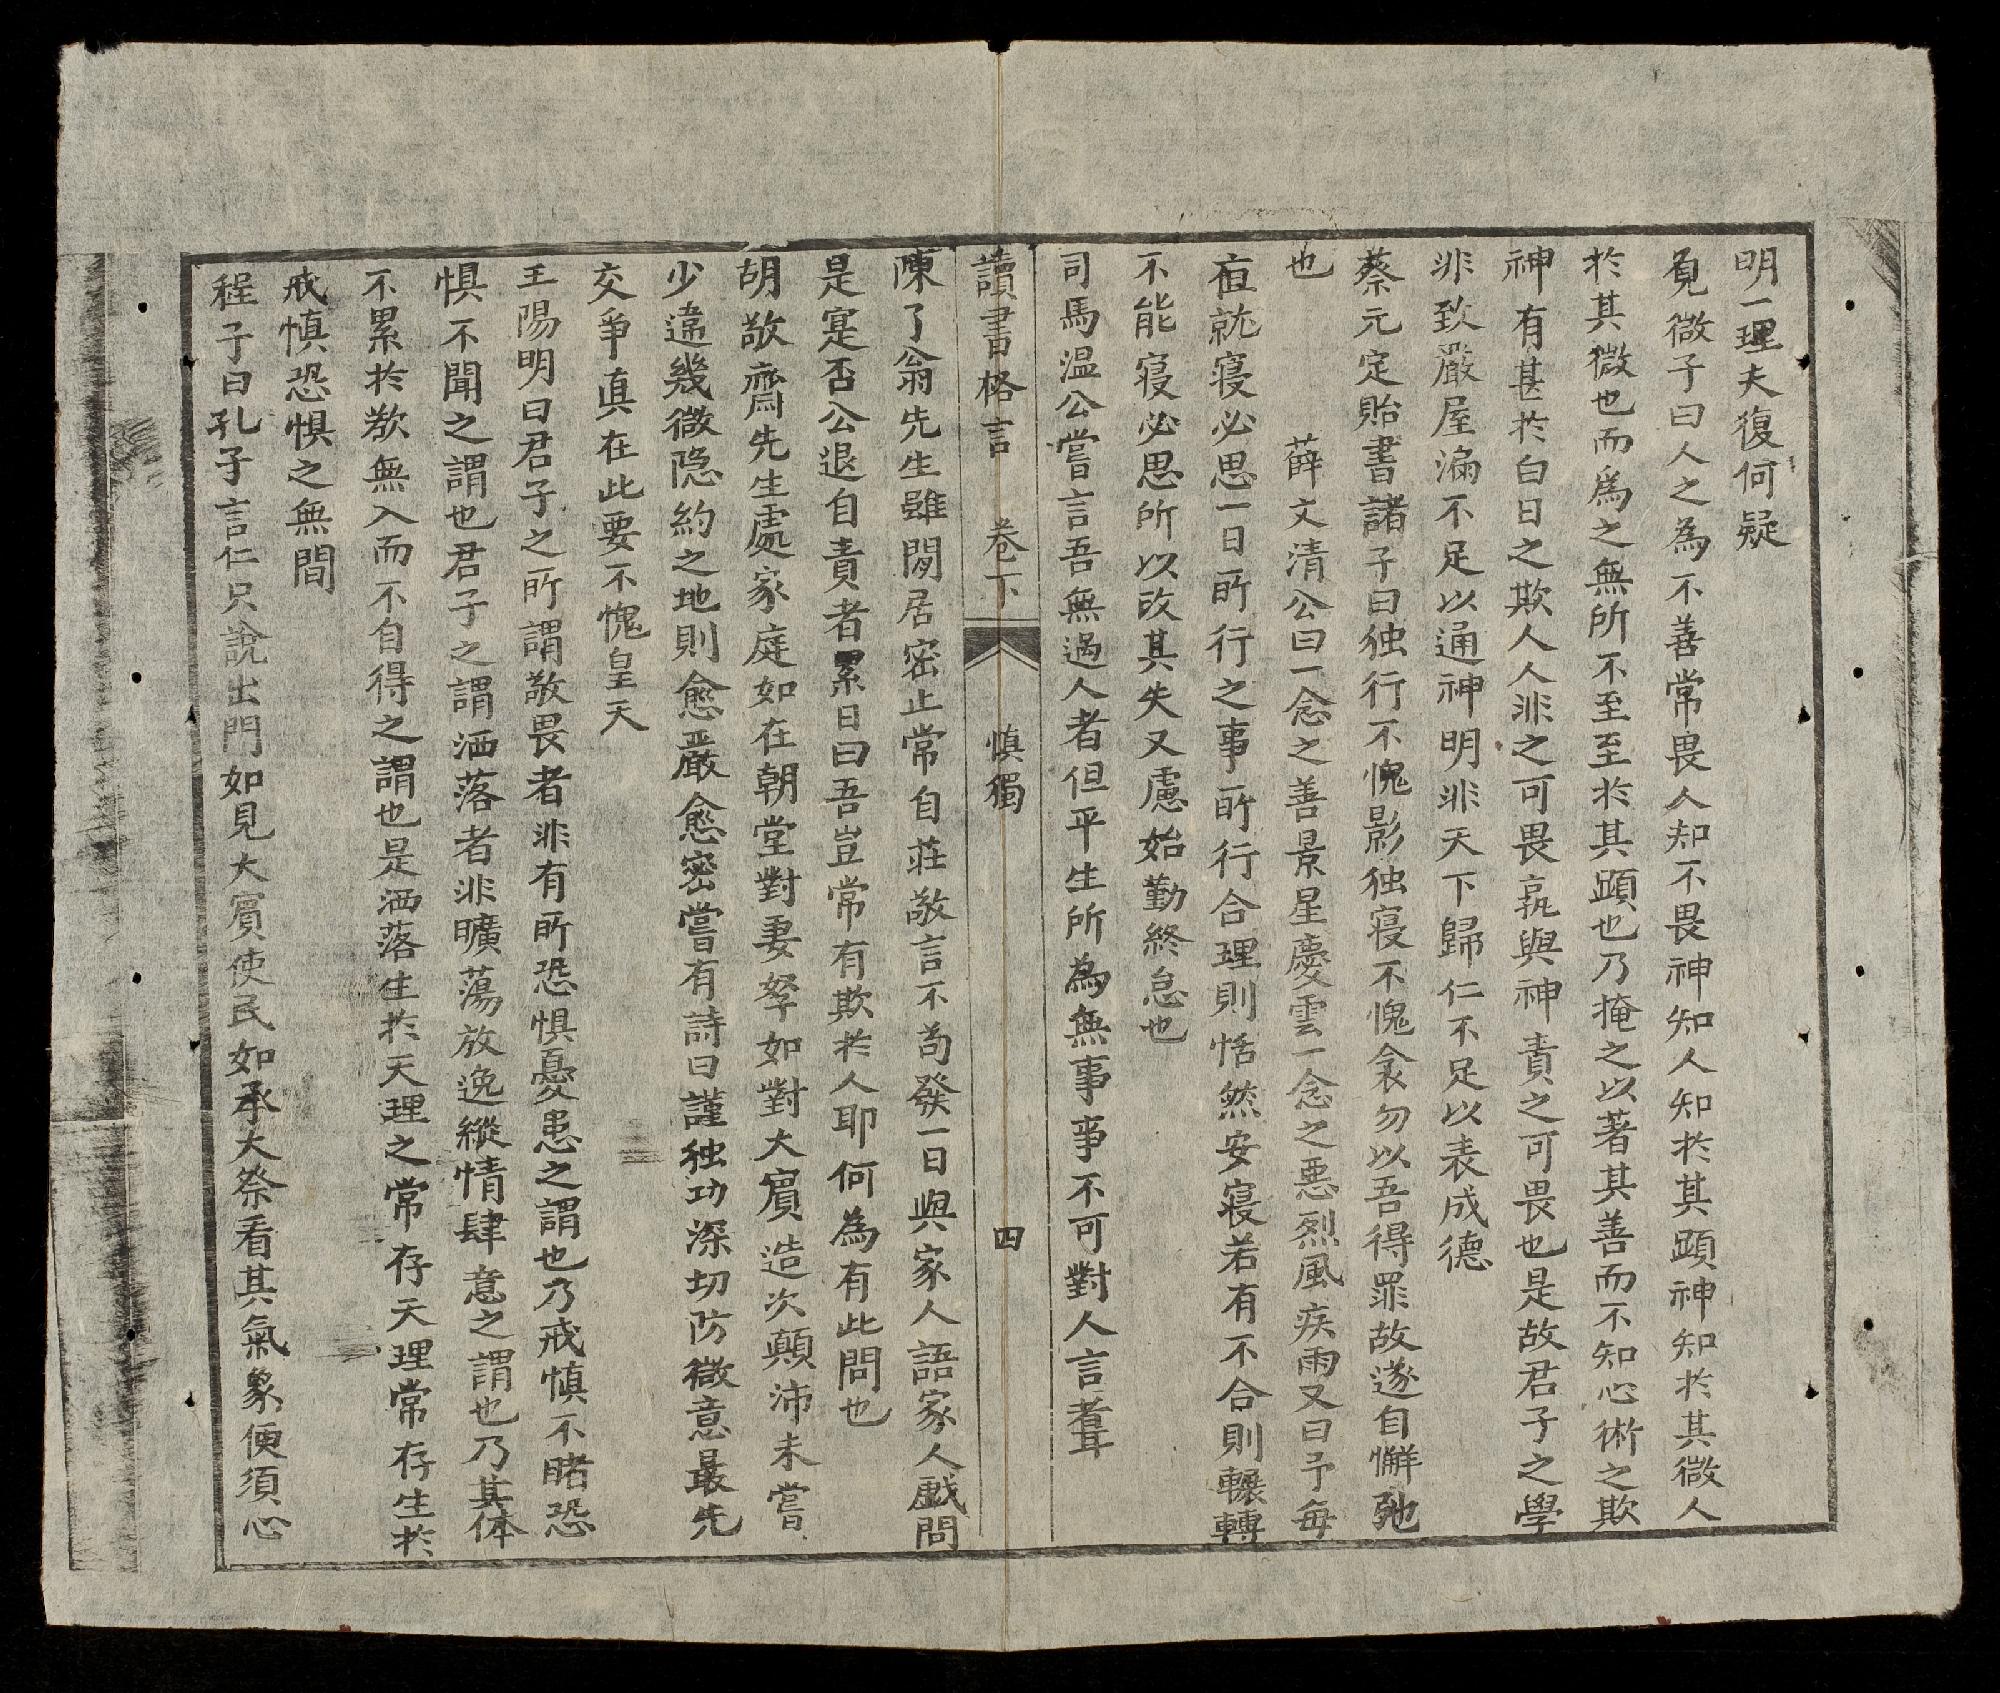 明一理夫復何疑
見微子曰人之為不善常畏人知不畏神知人知於其顕神知於其微人
於其微也而爲之無所不至至於其顕也乃掩之以著其善而不知心術之欺
神有甚於白日之欺人人非之可畏孰與神責之可畏也是故君子之學
非致嚴屋漏不足以通神明非天下歸仁不足以表成德
蔡元定貽書諸子曰独行不愧影独寝不愧衾勿以吾得罪故遂自懈弛
也　薛文清公曰一念之善景星慶雲一念之悪烈風疾雨又曰予每
夜就寝必思一日所行之事所行合理則恬然安寝若有不合則輾轉
不能寝必思所以改其失又慮始勤終怠也
司馬温公嘗言吾無過人者但平生所為無事事不可對人言耳
讀書格言　卷下　慎獨　四
陳了翁先生雖閒居密止常自莊敬言不苟發一日與家人語家人戯問
是寔否公退自責者累日曰吾豈常有欺於人耶何為有此問也
胡敬齋先生處家庭如在朝堂對妻孥如對大賓造次顛沛未嘗
少違幾微隐約之地則愈嚴愈密嘗有詩曰謹独功深切防微意最先
交爭真在此要不愧皇天
王陽明曰君子之所謂敬畏者非有所恐惧憂患之謂也乃戒慎不睹恐
惧不聞之謂也君子之謂洒落者非曠蕩放逸縱情肆意之謂也乃其体
不累於欲無入而不自得之謂也是洒落生於天理之常存天理常存生於
戒慎恐惧之無間
程子曰孔子言仁只說出門如見大賓使民如承大祭看其氣象便須心